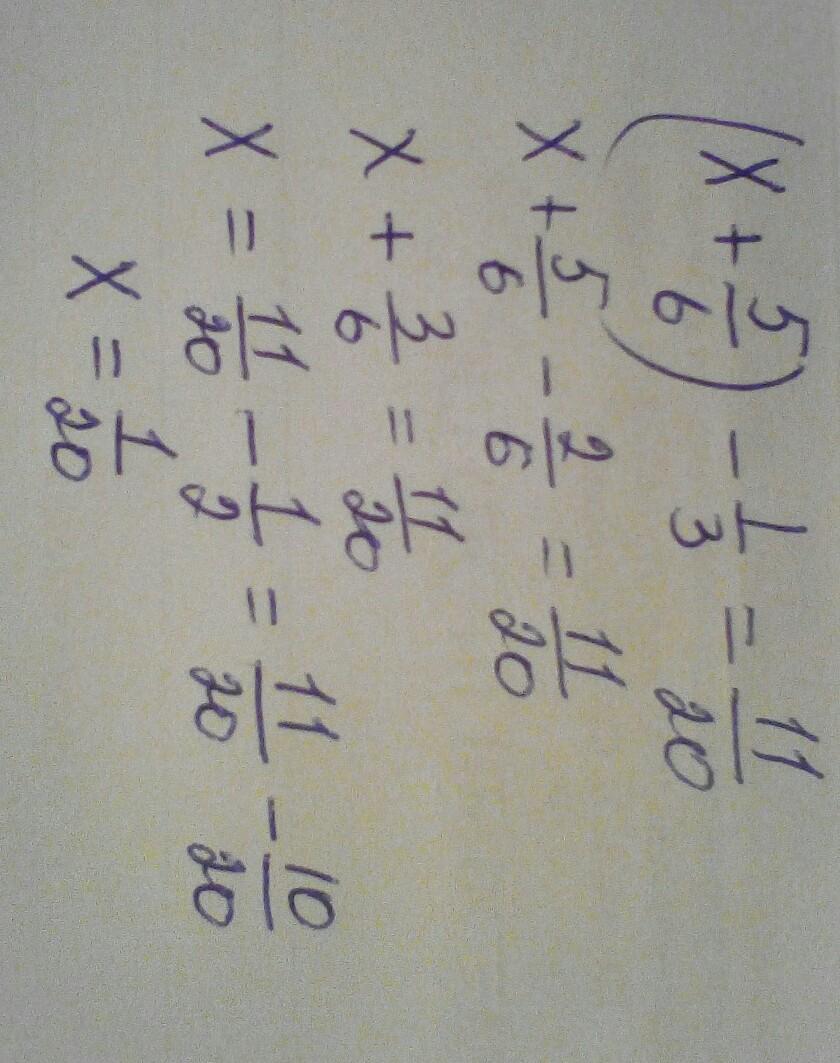 (x + 5/6) - 1/3 = 11/20
x + 5/6 - 2/6 = 11/20
x + 3/6 = 11/20
x = 11/20 - 1/2 = 11/20 - 10/20
x = 1/20